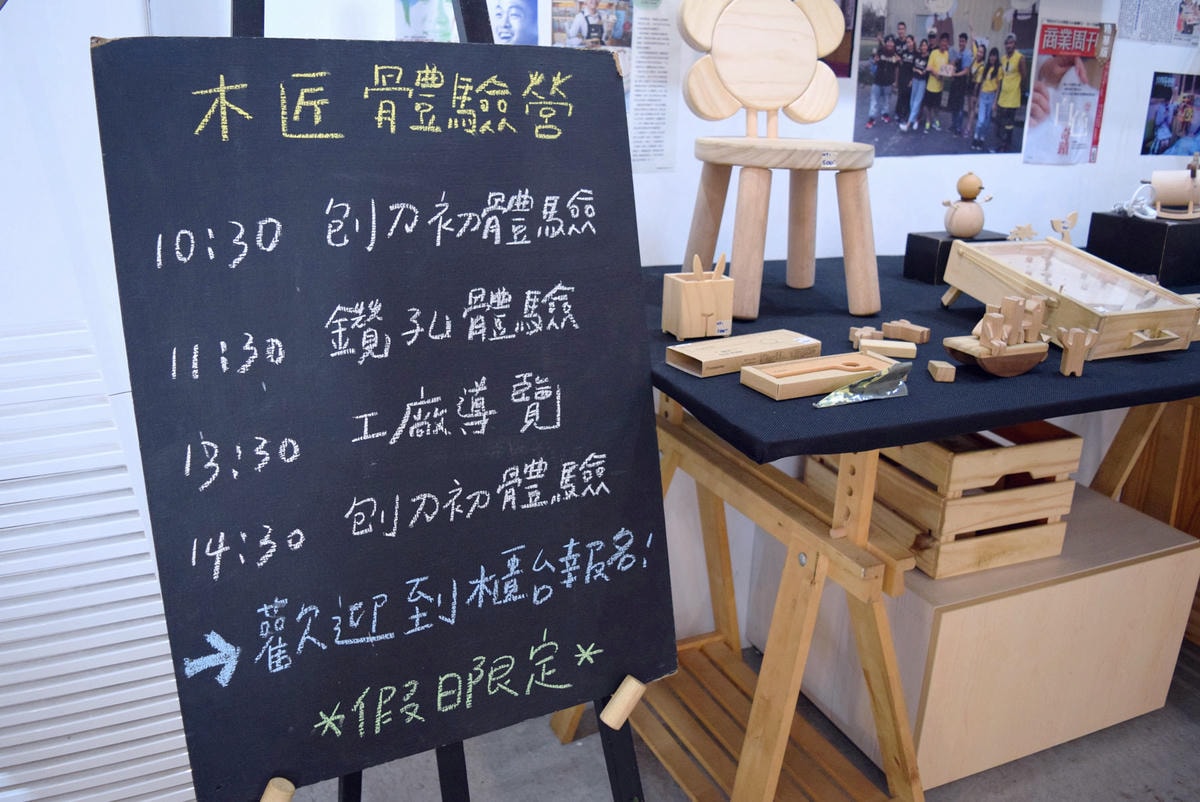 木匠 體驗營
10:30 刨刀初體驗
11:30 鑽孔體驗
13:30 工廠導覽
14:30 刨刀初體驗
→歡迎到櫃台報名!
*假日限定*
商業周刊